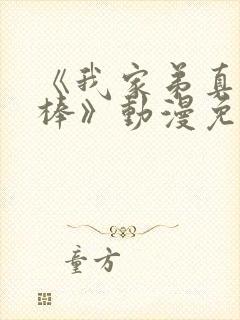 《我家弟真
棒》動漫免
童方